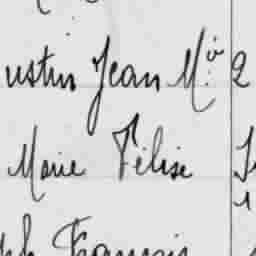 ustin Jean M.
Marie Félise
François